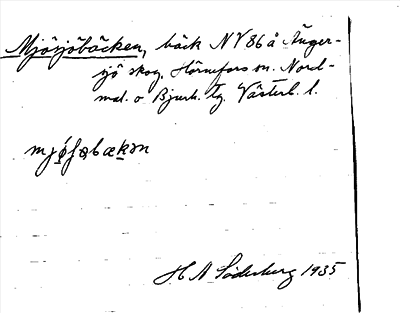 Mjösjöbäcken, bäck NV 86 å Ånger-
sjö skog, Hörnefors sn. Nord-
mal. o. Bjurh. tg. Västerb. l.
H N Söderberg 1935